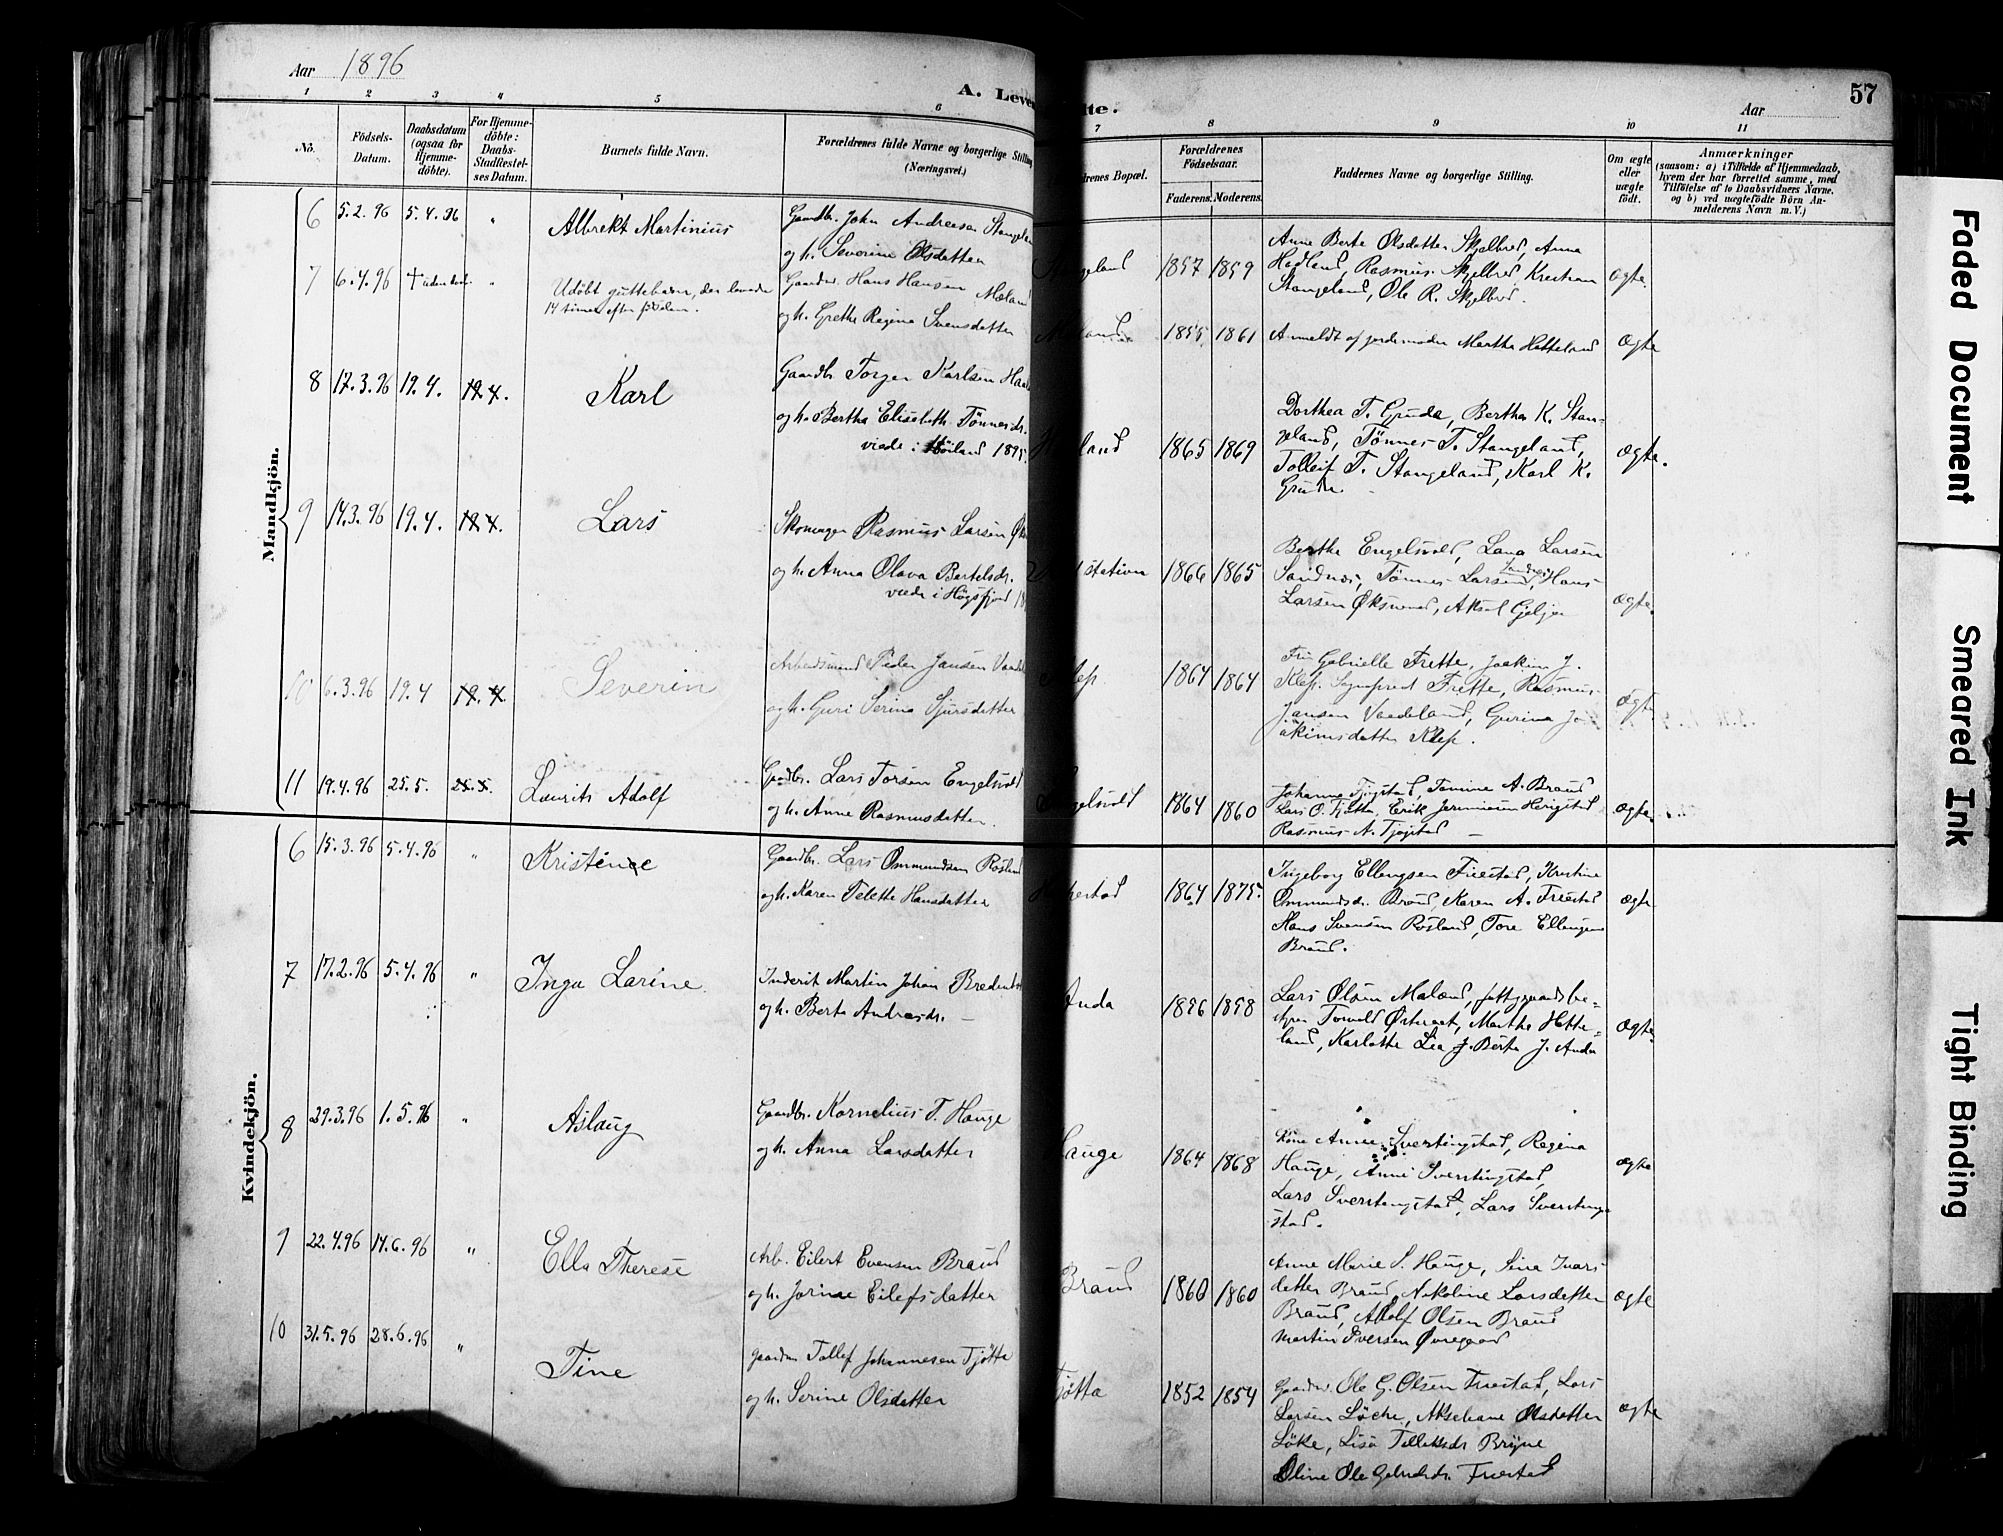 Aar 1896
A. Leven
te.
Aar
57
1 2 3 4 5 6 7 8 9 10 11
No.
Födsels-Datum.
Daabsdatum (ogsaa for Hjemme-döbte).
For Hjemme-döbte: Daabs-Stadfæstel-ses Datum.
Barnets fulde Navn.
Forældrenes fulde Navne og borgerlige Stilling (Næringsvei.)
drenes Bopæl.
Forældrenes Födselsaar.
Faderens. Moderens.
Faddernes Navne og borgerlige Stilling.
Om ægte eller uægte födt.
Anmærkninger
(saasom: a) i Tilfælde af Hjemmedaab, hvem der har forrettet samme, med Tilföielse af to Daabsvidners Navne, og b) ved uægtefödte Börn An-melderens Navn m. V.)
Mandkjön.
6 5.2.96 5.4.96 " Albrekt Martinius Gaardbr. John Andreasen Stangeland
og h. Severine Olsdatter
geland 1857 1859
Anne Berte Olsdatter Skjelbred, Anna
Hadland, Rasmus Skjelbred, Kristian
Stangeland, Ole R. Skjelbred.
ægte.
7 6.4.96 † uden daab " Udöbt guttebarn, der levede
14 timer efter födselen.
Gaardbr. Hans Hansen Mæland
og h. Grethe Regine Svensdatter
land 1855 1861 Anmeldt af jordemoder Martha Hetteland ægte
8 17.3.96 19.4. 19.4. Karl Gaardbr. Torger Karlsen
og h. Bertha Elisabeth Tönnesdr.
viede i Höiland 1895.
land 1865 1869
Dorthea T. Grude, Bertha K. Stan-
geland, Tönnes T. Stangeland,
Tolleif T. Stangeland, Karl K.
Grude.
ægte.
9 14.3.96 19.4. 19.4. Lars Skomager Rasmus Larsen
og h. Anna Olava Bertelsdr.
viede i Högsfjord
station 1866 1865
Berthe Engelsvold, Lana Larsen
Sandnes, Tönnes Larsen Sandnes, Hans
Larsen Öksnevad, Aksel Gjelje
ægte.
10 6.3.96 19.4 19.4. Severin Arbeidsmand Peder Jansen
og h. Guri Serina Sjursdatter
lep 1864 1864
Frü Gabrielle Frette, Joakim J.
Klep. Frette, Rasmus
Jansen Vaadeland, Gurina Jo-
akimsdatter Klep.
ægte
11 19.4.96 25.5. 25.5. Laurits Adolf Gaardbr. Lars Torsen Engelsvold
og h. Anne Rasmusdatter.
ngelsvold 1864 1860
Johanna Tjögstad, Tomine A. Braud
Lars O. Tjötta, Erik Jeremiasen Herigstad
Rasmus A. Tjögstad —
ægte.
Kvindekjön.
6 15.3.96 5.4.96 " Kristine Gaardbr. Lars Ommundsen Rosland
og h. Karen Telette Hansdatter
estad 1864 1875.
Ingeborg Ellengsen Friestad, Kristine
Ommundsdr. Braud, Karen A. Friestad
Hans Svensen Rosland, Tore Ellengsen
Braud.
ægte
7 17.2.96 5.4.96 " Inga Larine Inderst Martin Johan
og h. Berte Andreasdr. —
Anda 1856 1858
Lars Olsen Maland, fattiggaardsbe-
styrer Torvald Östraat, Marthe Hette-
land, Karlotte Lea J. Berte J. Anda
ægte.
8 29.3.96 1.5.96 " Aslaug Gaardbr. Kornelius T. Hauge
og h. Anna Larsdatter
auge 1864 1868
Kone Anne Sverstingstad, Regina
Hauge, Anne Sverstingstad,
Lars Sverstingstad, Lars Sversting-
stad.
ægte
9 22.4.96 14.6.96 " Ella Therese Arb. Eilert Evensen Braud
og h. Jorine Eilefsdatter
Braud 1860 1860
Anne Marie S. Hauge, Sina Ivars-
datter Braud, Nikoline Larsdatter
Braud, Adolf Olsen Braud
Martin Iversen Övregaard
ægte
10 31.5.96 28.6.96 " Tine Tollef Johannesen Tjötta
og h. Serine Olsdatter
jötta 1852 1854
Gaardbr. Ole G. Olsen Friestad, Lars
Larsen Löche, Akseliane Olsdatter
Löke, Lisa Tollaksdr. Bryne
Oline Ole Gabrielsdr. Friestad
ægte
Faded Document
Smeared Ink
Tight Binding